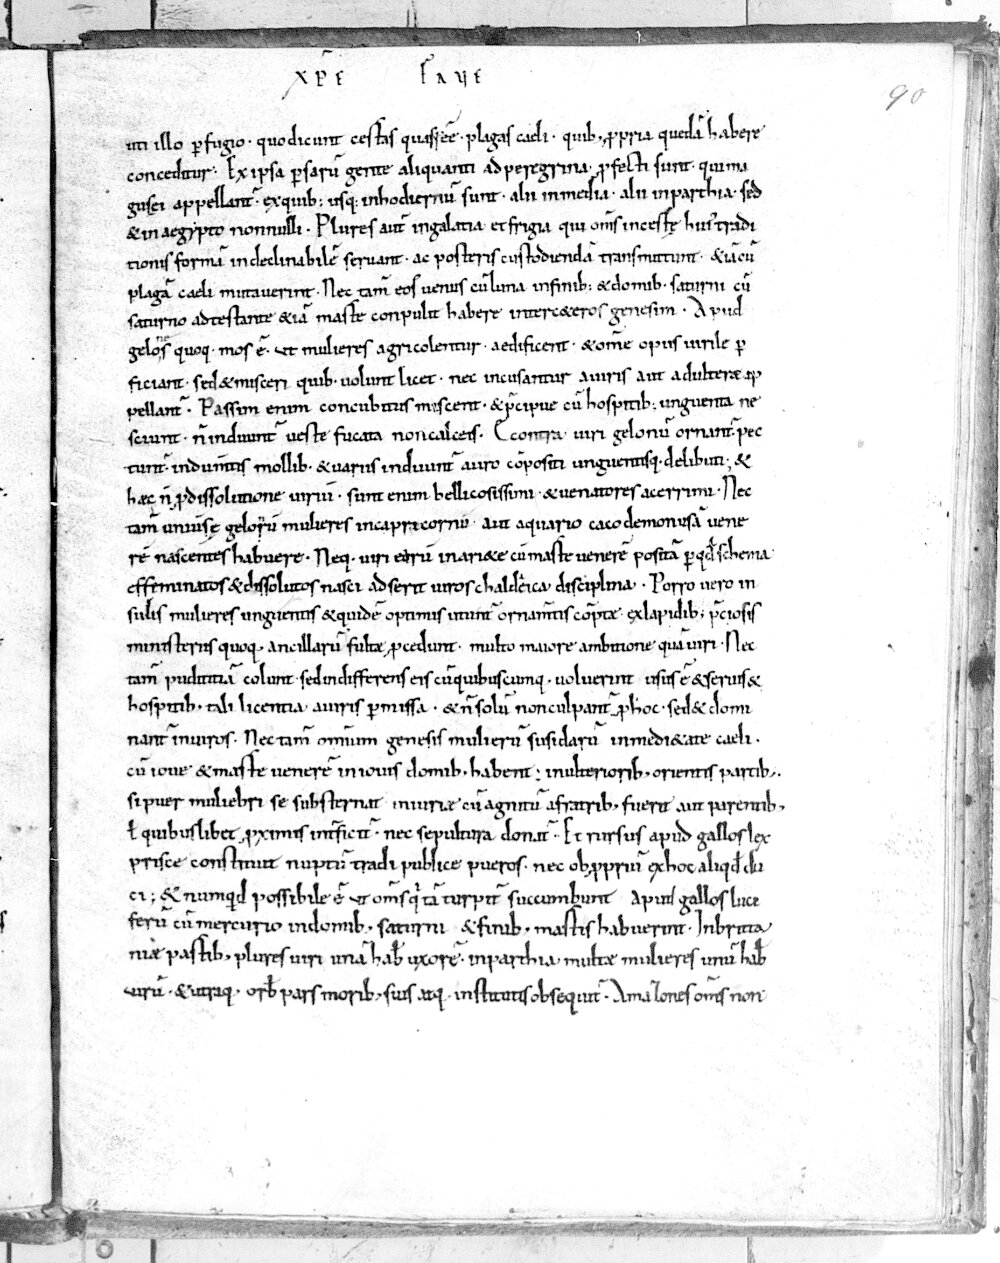 xp̄e faue
90
uti illo ꝑfugio · quo dicunt cestas quas ee̅ · plagas caeli · quib; ꝓpria queda̅ habere
conceditur · Ex ipsa ꝑsaru̅ gente aliquanti ad peregrina ꝓfecti sunt · qui ma
gusei appellant̅ · ex quib; usq; in hodiernu̅ sunt · alii in media · alii in parthia · sed
& in aegypto nonnulli · Plures aut̅ in galatia et frigia qui om̅s incestę huius tradi
tionis forma̅ indeclinabile̅ servant · ac posteris custodienda̅ transmittunt · & ia̅ cu̅
plaga̅ caeli mutaverint · Nec tam̅ eos venus cu̅ luna in finib; & domib · saturni cu̅
saturno adtestante & ia̅ maste conpulit habere inter c&eros genesim · Apud
gelones quoq · mos e̅ · ut mulieres agri colentur · aedificent · & om̅e opus uirile ꝑ
ficiant · sed & misceri quib · uolunt licet · nec incusantur a uiris aut adulteræ ap
pellant̅ · Passim enim concubitus miscent · & p̅cipue cu̅ hospitib; unguenta ne
sciunt · n̅ induunt̅ ueste fucata non calceis · E contra uiri gelonu̅ ornant̅ pec
tunt̅ · indum̅tis mollib · & uariis induunt̅ auro co̅positi unguentisq · delibuti ; &
hæc n̅ ꝓ dissolutione uirium · sunt enim bellicosissimi · & uenatores acerrimi · Nec
tam̅ uniuersę geloru̅ mulieres in capricornu̅ · aut aquario cacodemonusa̅ uene
re̅ nascentes habuere · Neq · uiri eoru̅ in ari&e cu̅ maste uenere̅ posita̅ ꝑ qd̅ schema
effeminatos & dissolutos nasci adserit uiros chaldeica disciplina · Porro uero in
sulis mulieres unguentis & quide̅ optimis utunt̅ ornam̅tis co̅ptæ · ex lapidib; p̅ciosis
ministeriis quoq, ancillaru̅ fultæ ꝓcedunt · multo maiore ambitione qua̅ uiri · Nec
tam̅ pudititia̅ colunt · sed indifferens eis cu̅ quibuscumq, uoluerint usus e̅ & seruis &
hospitib, tali licentia a uiris ꝑmissa · & n̅ solu̅ non culpant̅ ꝓ hoc · sed & domi
nant̅ in uiros · Nec tam̅ omnium genesis mulieru̅ susidaru̅ in medi&ate caeli ·
cu̅ ioue & maste uenere̅ in iouis domib, habent ; in ulteriorib, orientis partib, ·
si puer muliebri se substernat iniuriæ cu̅ agnitu̅ a fratrib, fuerit aut parentib,
ł quibuslibet ꝓximis int̅ficit̅ · nec sepultura donat̅ · Et rursus apud gallos lex
prisce constituit nuptu̅ tradi publice pueros · nec ob ꝓpriu̅ ex hoc aliqd̅ du
ci ; & numqd̅ possibile e̅ ut om̅s qi ta̅ turpit̅ succumbunt apud gallos luci
feru̅ cu̅ mercurio in domib, saturni & finib, mastis habuerint · In britta
niæ pastib, plures uiri una̅ hab̅ uxore̅ · in parthia multæ mulieres unu̅ hab̅
uiru̅ · & utraq, orb̅ pars morib, suis atq · institutis obsequit̅ · Amazones om̅s non